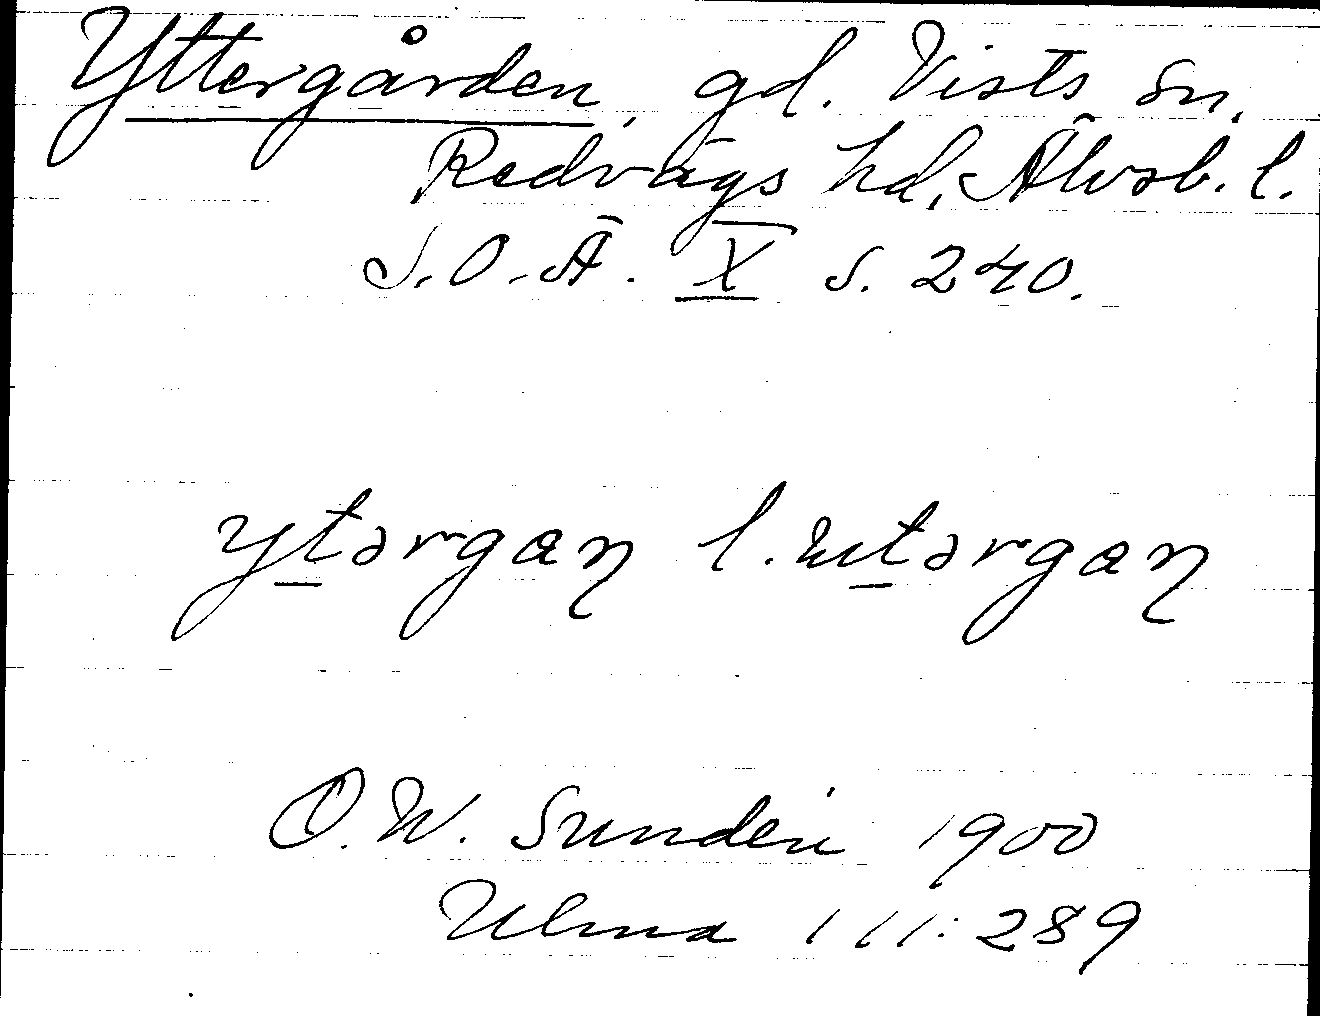 Yttergården, gd. Vists sn,
Redvägs hd, Älvsb. l.
S.O.Ä. X s. 240.
yt̲ərgaɳ l. ut̲ərgaɳ
O.W. Sundén 1900
Ulma 111:289